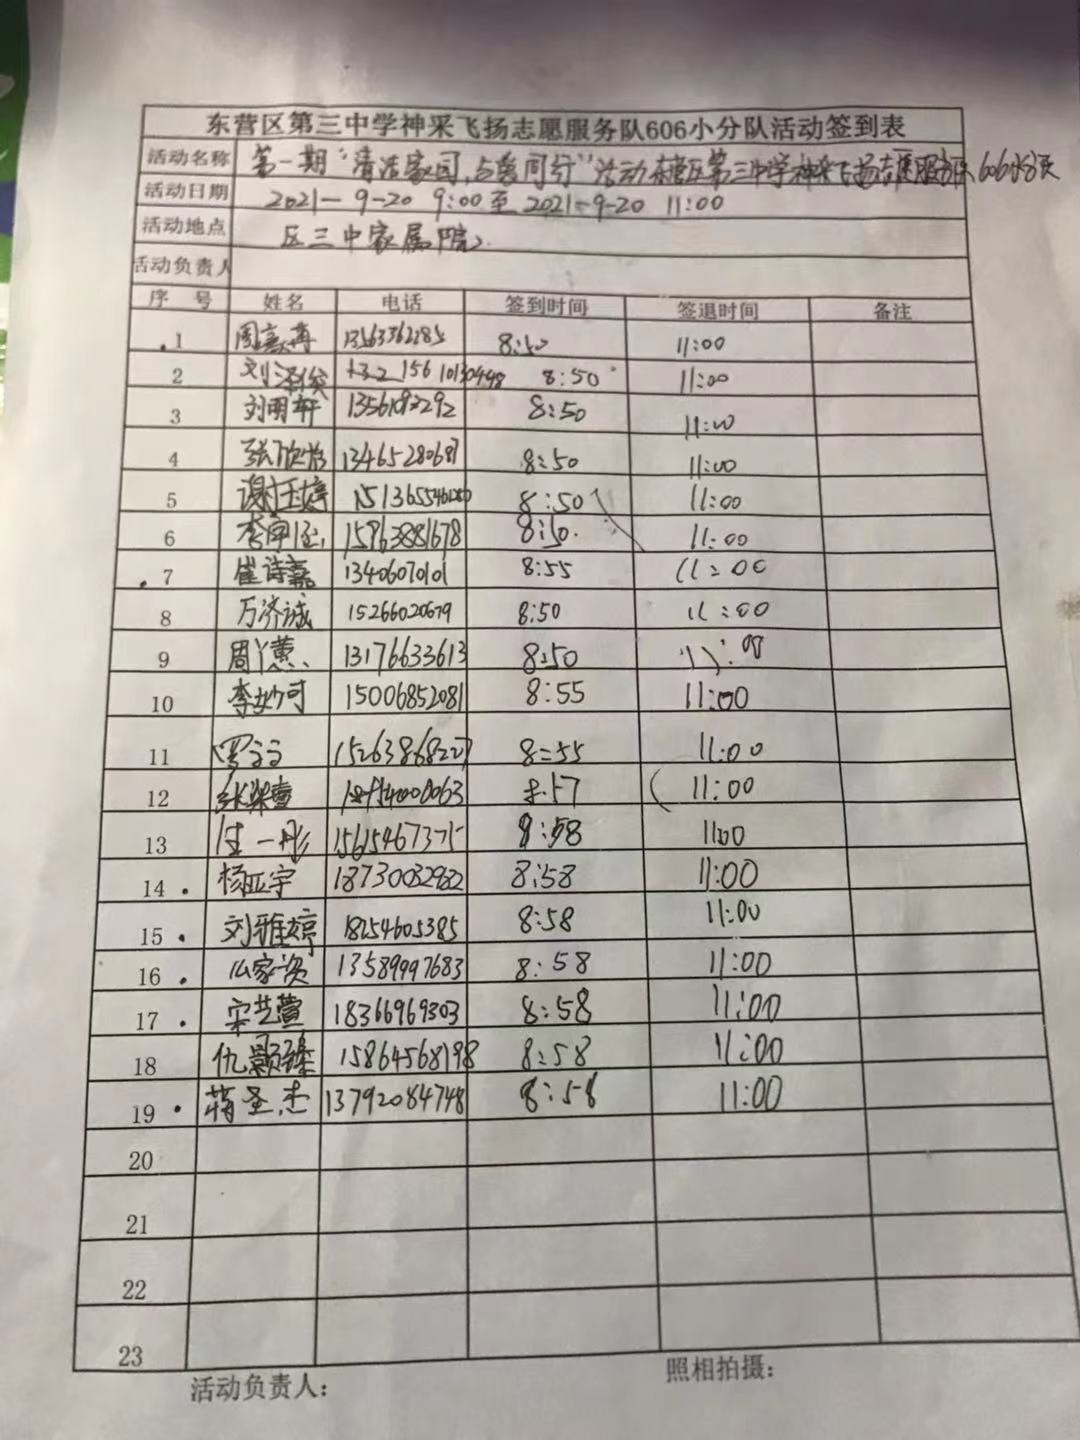 东营区第三中学神采飞扬志愿服务队606小分队活动签到表
活动名称 第一期“清洁家园,与爱同行”活动东营区第三中学神采飞扬志愿服务队606小分队
活动日期 2021-9-20 9:00至2021-9-20 11:00
活动地点 区三中家属院
活动负责人
序号 姓名 电话 签到时间 签退时间 备注
1 13563362285 8:50 11:00
2 刘泽俊 15610130448 8:50 11:00
3 刘明轩 8:50 11:00
4 张欣怡 13465280687 8:50 11:00
5 谢玉婷 8:50 11:00
6 15963881678 8:50 11:00
7 崔诗嘉 13406070101 8:55 11:00
8 万济诚 15266020679 8:50 11:00
9 13176633613 8:50 11:00
10 李妙可 15006852081 8:55 11:00
11 15263868227 8:55 11:00
12 11:00
13 付一彤 15615467375 8:58 11:00
14 杨亚宇 18730032982 8:58 11:00
15 刘雅婷 18254605385 8:58 11:00
16 13589997683 8:58 11:00
17 宋艺萱 18366969303 8:58 11:00
18 仇颢臻 15864568198 8:58 11:00
19 蒋圣杰 13792084748 8:58 11:00
20
21
22
23
活动负责人: 照相拍摄: